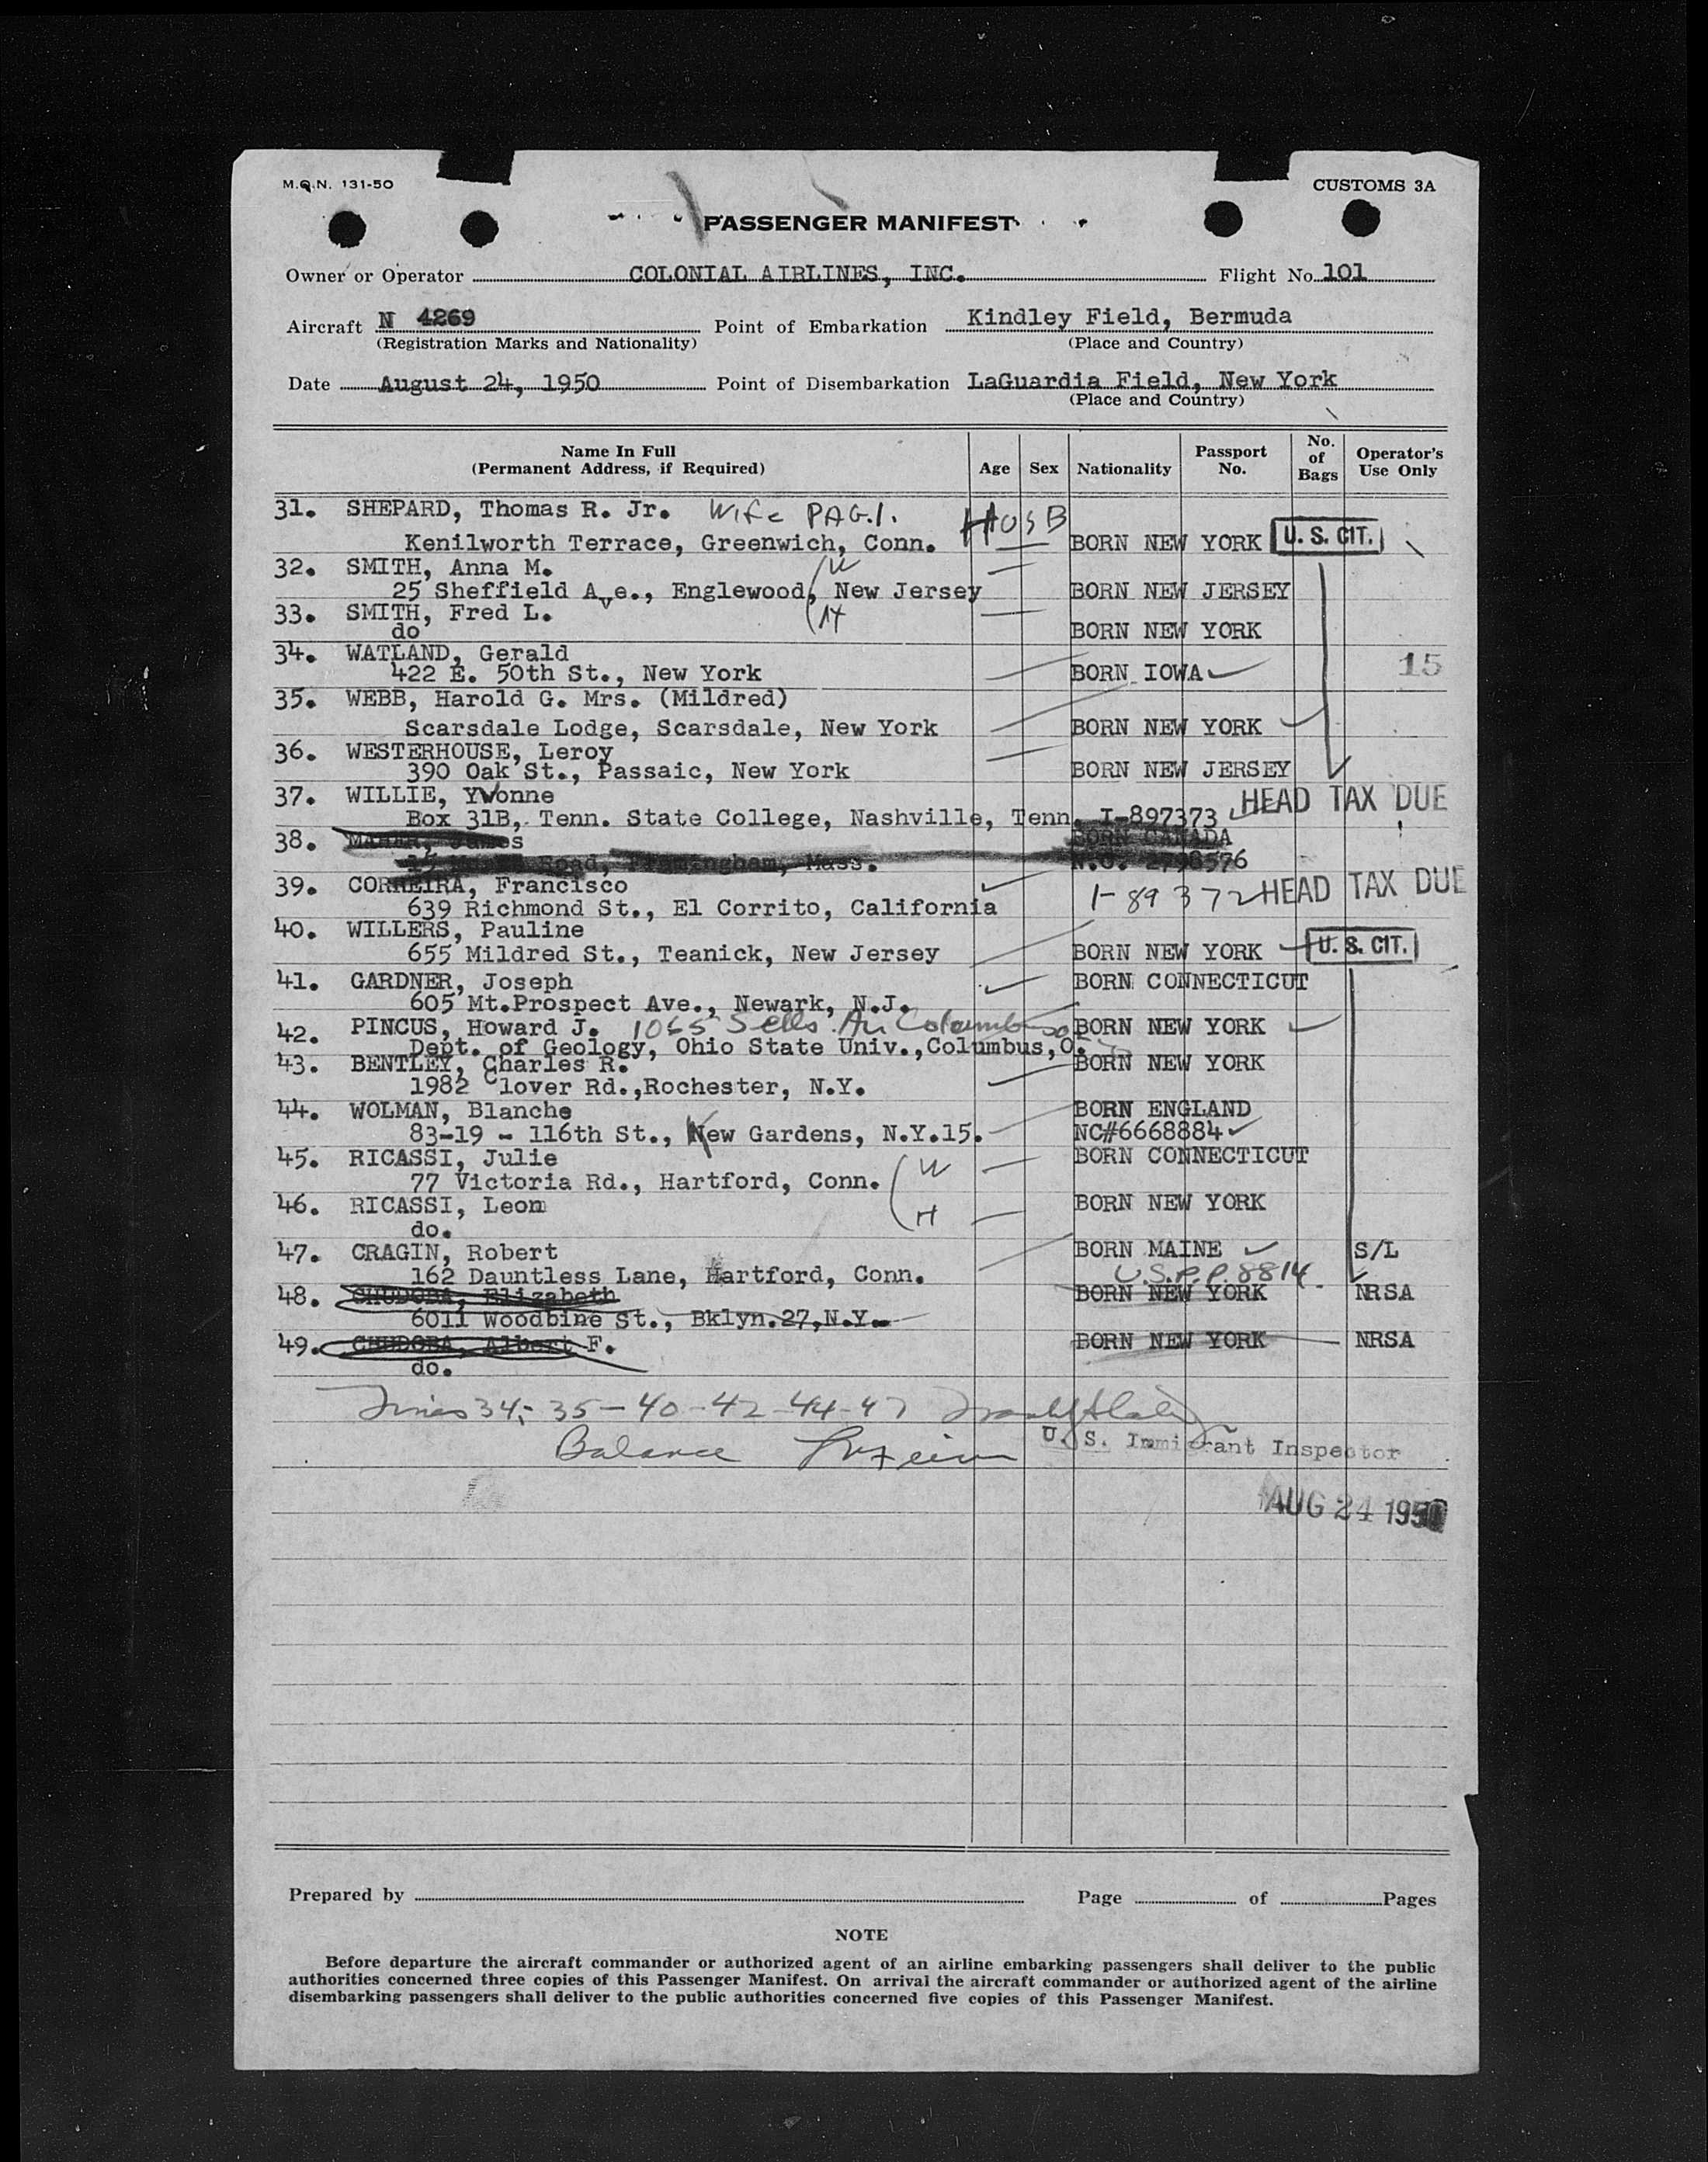 M.Q.N. 131-50
CUSTOMS 3A
PASSENGER MANIFEST
Owner or Operator COLONIAL AIRLINES, INC. Flight No. 101
Aircraft N 4269 Point of Embarkation Kindley Field, Bermuda
(Registration Marks and Nationality) (Place and Country)
Date August 24, 1950 Point of Disembarkation LaGuardia Field, New York
(Place and Country)
Name In Full (Permanent Address, if Required) Age Sex Nationality Passport No. No. of Bags Operator's Use Only
31. SHEPARD, Thomas R. Jr. Wife PAG.1. HUSB
Kenilworth Terrace, Greenwich, Conn. BORN NEW YORK U. S. CIT.
32. SMITH, Anna M. W
25 Sheffield Ave., Englewood, New Jersey BORN NEW JERSEY
33. SMITH, Fred L. H
do BORN NEW YORK
34. WATLAND, Gerald
422 E. 50th St., New York BORN IOWA 15
35. WEBB, Harold G. Mrs. (Mildred)
Scarsdale Lodge, Scarsdale, New York BORN NEW YORK
36. WESTERHOUSE, Leroy
390 Oak St., Passaic, New York BORN NEW JERSEY
37. WILLIE, Yvonne HEAD TAX DUE
Box 31B, Tenn. State College, Nashville, Tenn. I-897373
38. MAHER, James BORN CANADA
Road, Framingham, Mass. N.C. 2798576
39. CORREIRA, Francisco 1-89372 HEAD TAX DUE
639 Richmond St., El Corrito, California
40. WILLERS, Pauline
655 Mildred St., Teanick, New Jersey BORN NEW YORK U. S. CIT.
41. GARDNER, Joseph BORN CONNECTICUT
605 Mt.Prospect Ave., Newark, N.J.
42. PINCUS, Howard J. 1065 Sells Av Columbus BORN NEW YORK
Dept. of Geology, Ohio State Univ.,Columbus,O.
43. BENTLEY, Charles R. BORN NEW YORK
1982 Clover Rd.,Rochester, N.Y.
44. WOLMAN, Blanche BORN ENGLAND
83-19 - 116th St., Kew Gardens, N.Y.15. NC#6668884
45. RICASSI, Julie W BORN CONNECTICUT
77 Victoria Rd., Hartford, Conn.
46. RICASSI, Leon H BORN NEW YORK
do.
47. CRAGIN, Robert BORN MAINE S/L
162 Dauntless Lane, Hartford, Conn. U.S.P.P. 8814
48. CHUDOBA, Elizabeth BORN NEW YORK NRSA
6011 Woodbine St., Bklyn.27,N.Y.
49. CHUDOBA, Albert F. BORN NEW YORK NRSA
do.
Lines 34, 35-40-42-44-47
Balance
U. S. Immigrant Inspector
AUG 24 1950
Prepared by Page of Pages
NOTE
Before departure the aircraft commander or authorized agent of an airline embarking passengers shall deliver to the public
authorities concerned three copies of this Passenger Manifest. On arrival the aircraft commander or authorized agent of the airline
disembarking passengers shall deliver to the public authorities concerned five copies of this Passenger Manifest.